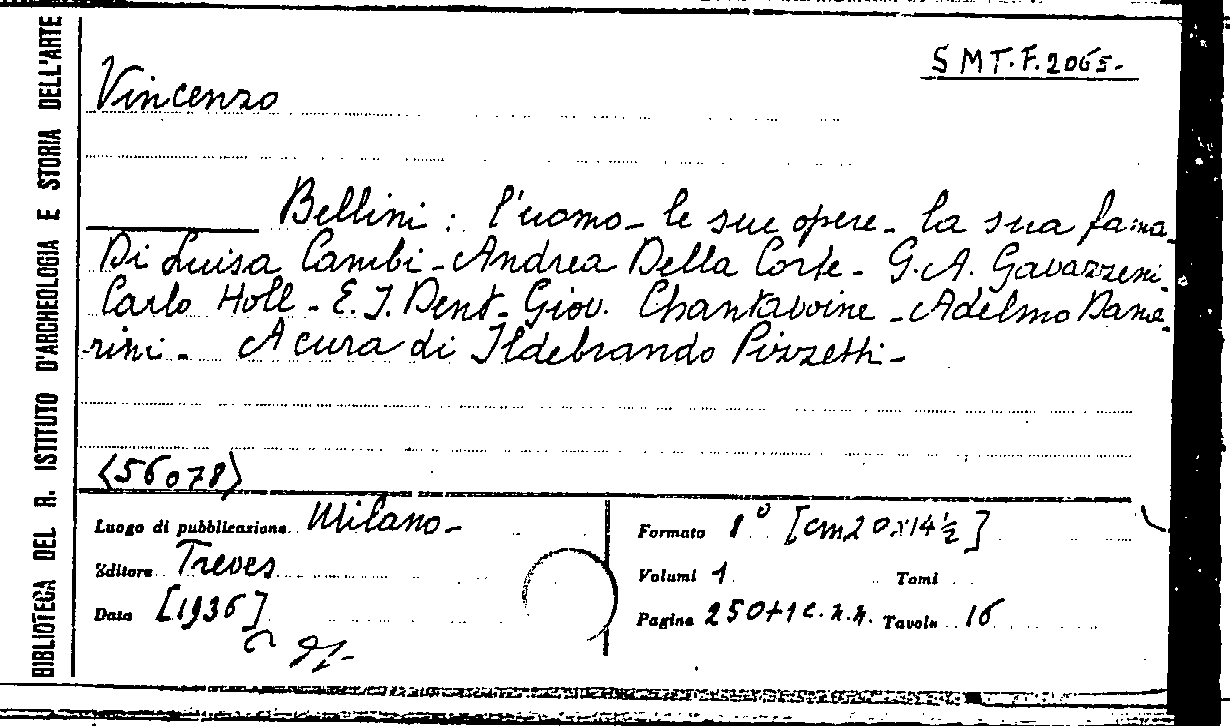 BIBLIOTECA DEL R. ISTITUTO D'ARCHEOLOGIA E STORIA DELL'ARTE
S M T. F. 2065.-
Vincenzo
Bellini : l'uomo - le sue opere - la sua fama.
Di Luisa Cambi - Andrea Della Corte - G. A. Gavazzeni.
Carlo Holl - E. J. Dent - Giov. Chantavoine - Adelmo Dame-
rini - A cura di Ildebrando Pizzetti -
<56078>
Luogo di pubblicazione Milano -
Editore Treves
Data [1936]
Formato 8° [cm 20x14½]
Volumi 1 Tomi
Pagine 250+1 c. n. n. Tavole 16